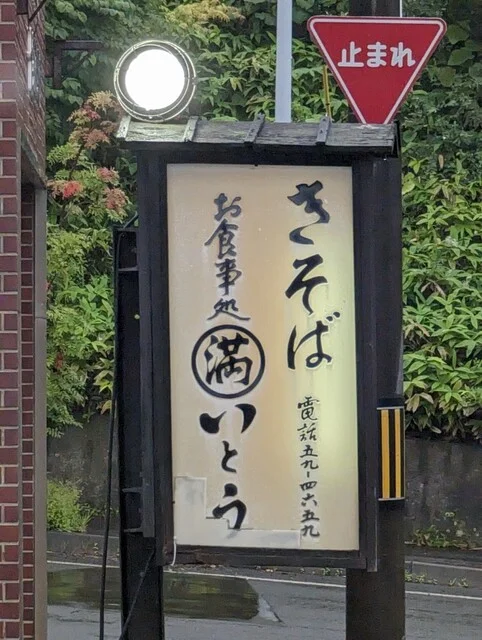 止まれ
きそば
電話五九ー四六五九
お食事処
満いとう